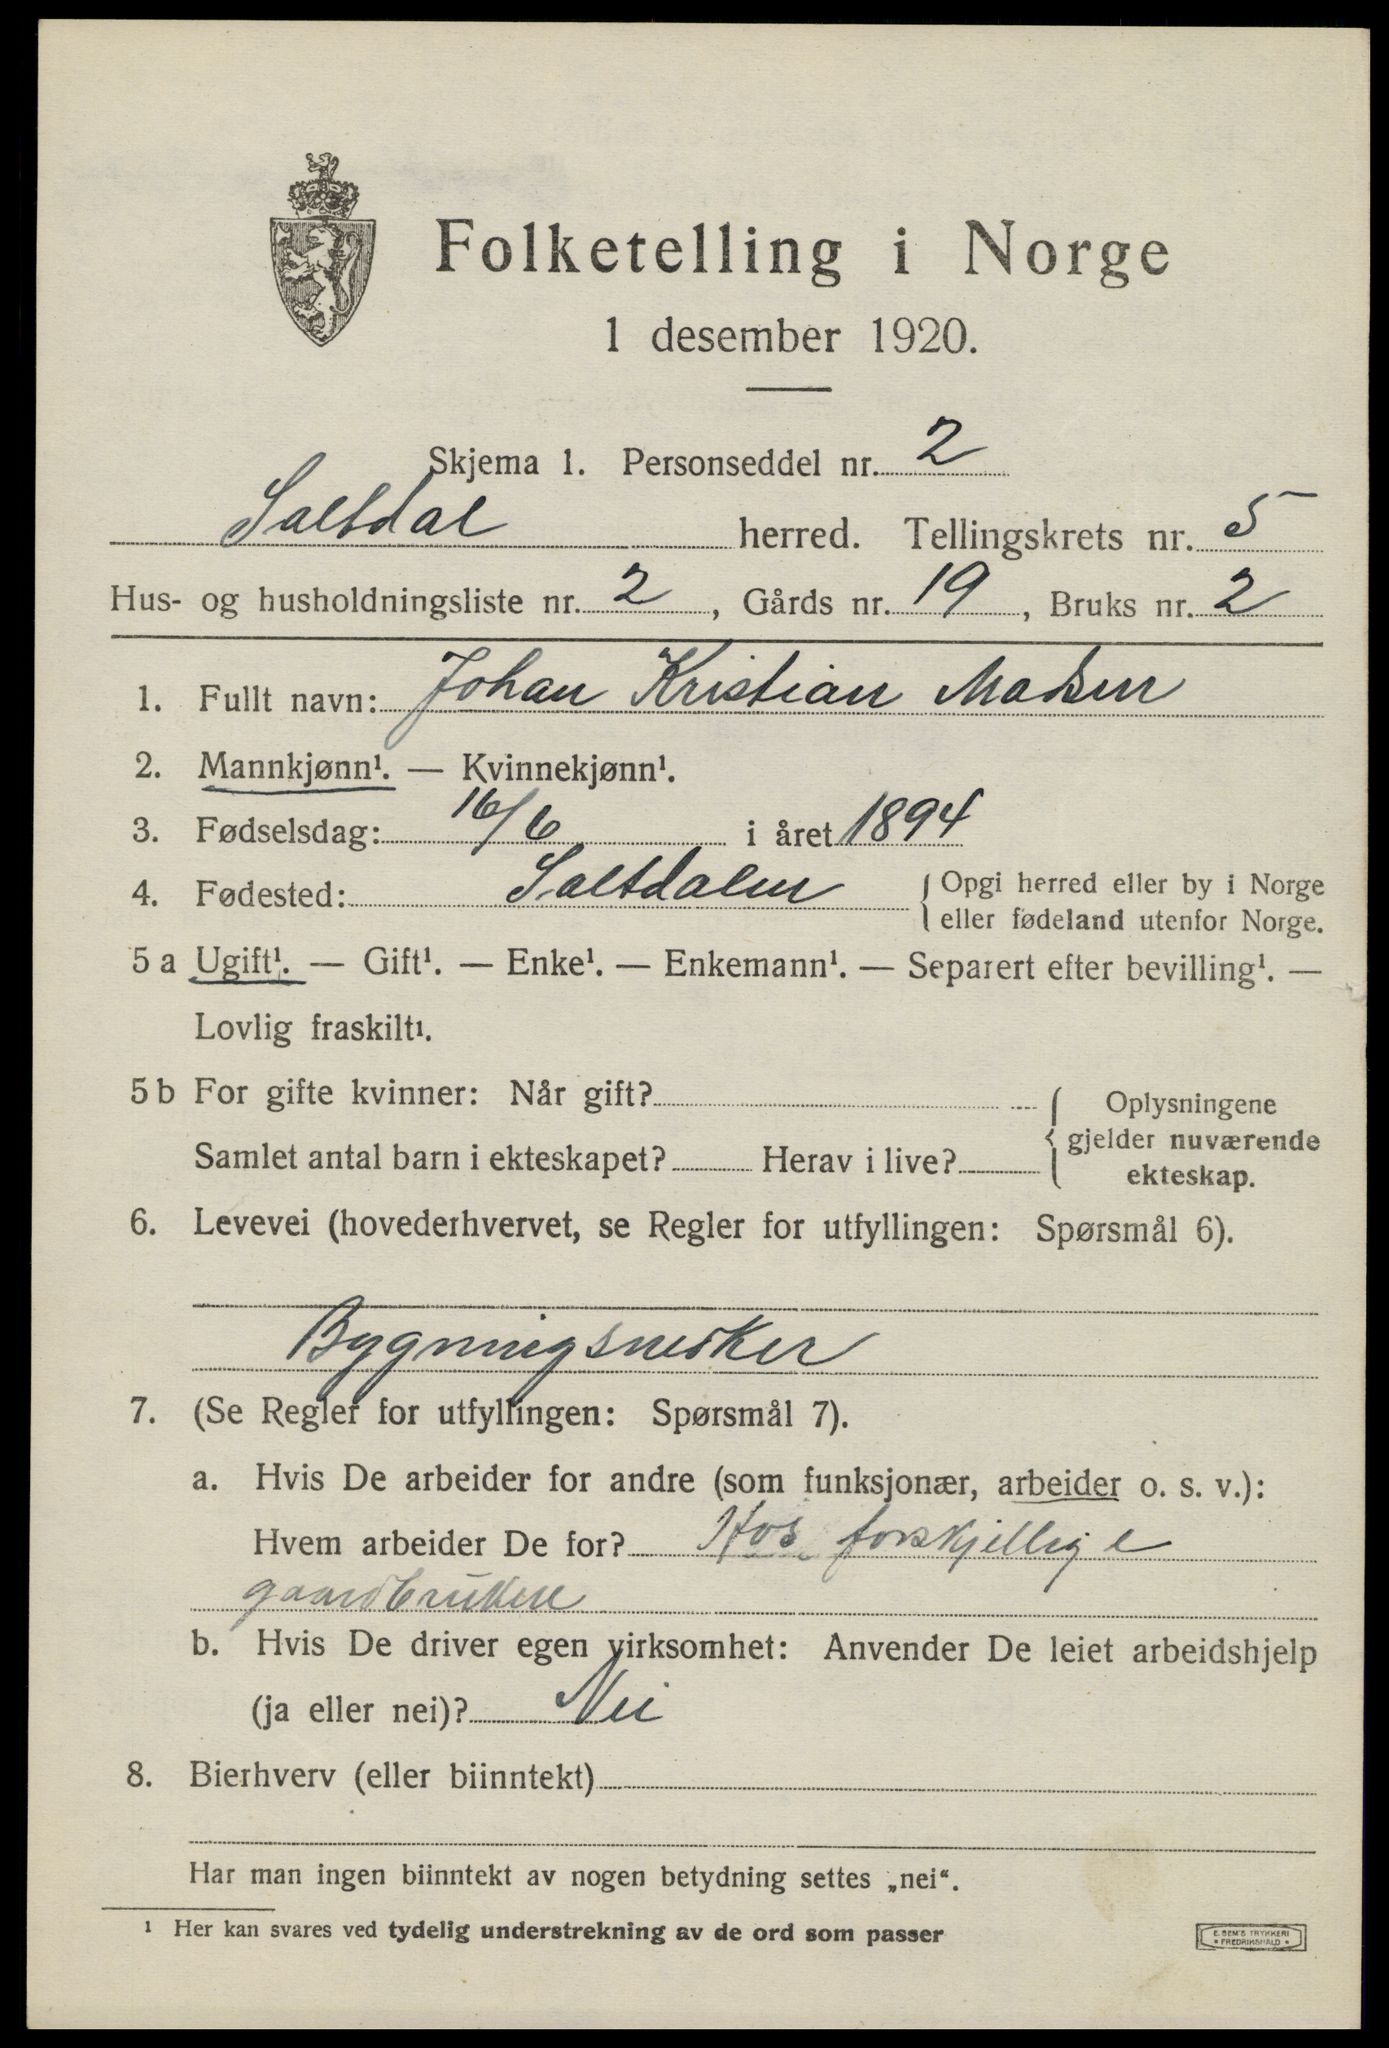 Folketelling i Norge
1 desember 1920.
Skjema 1. Personseddel nr. 2
Saltdal herred. Tellingskrets nr. 5
Hus- og husholdningsliste nr. 2, Gårds nr. 19, Bruks nr. 2
1. Fullt navn: Johan Kristian Madsen
2. Mannkjønn¹. — Kvinnekjønn¹.
3. Fødselsdag: 16/6 i året 1894
4. Fødested: Saltdalen { Opgi herred eller by i Norge
eller fødeland utenfor Norge.
5 a Ugift¹. — Gift¹. — Enke¹. — Enkemann¹. — Separert efter bevilling¹. —
Lovlig fraskilt¹.
5 b For gifte kvinner: Når gift? { Oplysningene
gjelder nuværende
Samlet antal barn i ekteskapet? Herav i live? ekteskap.
6. Levevei (hovederhvervet, se Regler for utfyllingen: Spørsmål 6).
Bygningsnedker
7. (Se Regler for utfyllingen: Spørsmål 7).
a. Hvis De arbeider for andre (som funksjonær, arbeider o. s. v.):
Hvem arbeider De for? Hos forskjellige
gaardbrukere
b. Hvis De driver egen virksomhet: Anvender De leiet arbeidshjelp
(ja eller nei)? Nei
8. Bierhverv (eller biinntekt)
Har man ingen biinntekt av nogen betydning settes „nei“.
¹ Her kan svares ved tydelig understrekning av de ord som passer
E. SEM'S TRYKKERI
* FREDRIKSHALD *